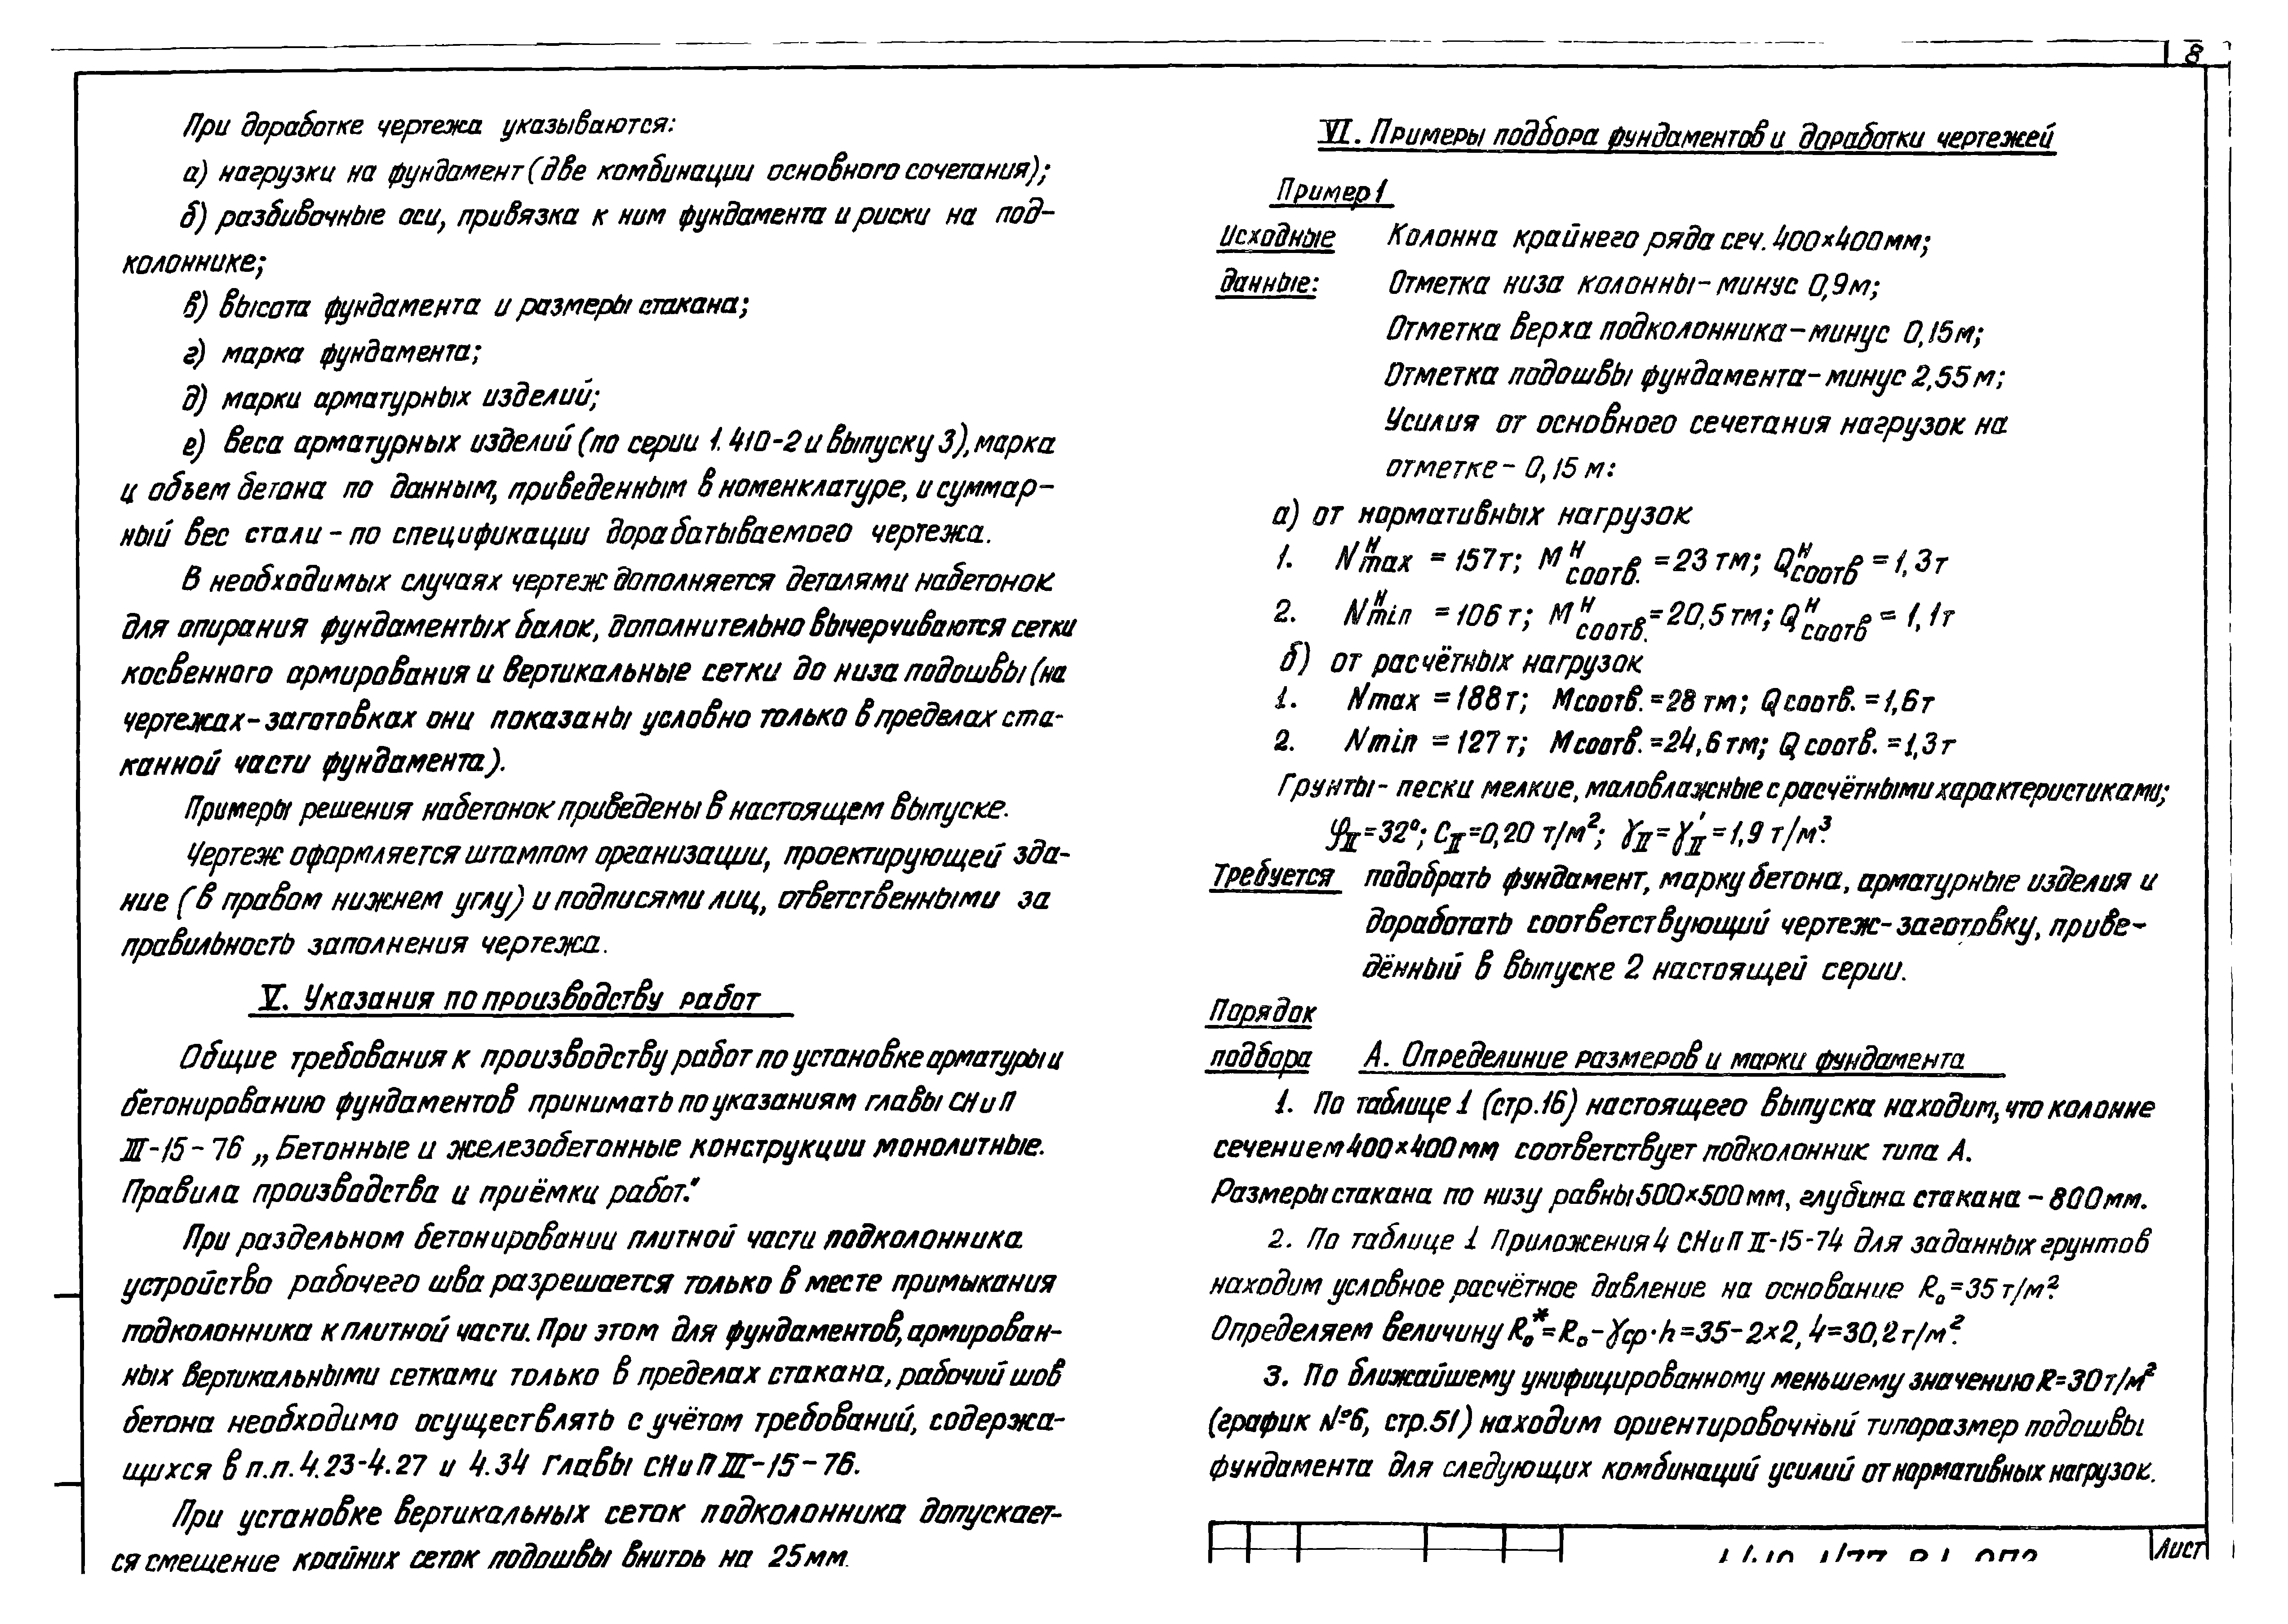 8
При доработке чертежа указываются:
а) нагрузки на фундамент (две комбинации основного сочетания);
б) разбивочные оси, привязка к ним фундамента и риски на под-
колоннике;
в) высота фундамента и размеры стакана;
г) марка фундамента;
д) марки арматурных изделий;
е) веса арматурных изделий (по серии 1.410-2 и выпуску 3), марка
и объем бетона по данным, приведенным в номенклатуре, и суммар-
ный вес стали - по спецификации дорабатываемого чертежа.
В необходимых случаях чертеж дополняется деталями набетонок
для опирания фундаментых балок, дополнительно вычерчиваются сетки
косвенного армирования и вертикальные сетки до низа подошвы (на
чертежах-заготовках они показаны условно только в пределах ста-
канной части фундамента).
Примеры решения набетонок приведены в настоящем выпуске.
Чертеж оформляется штампом организации, проектирующей зда-
ние (в правом нижнем углу) и подписями лиц, ответственными за
правильность заполнения чертежа.
V. Указания по производству работ
Общие требования к производству работ по установке арматуры и
бетонированию фундаментов принимать по указаниям главы СНиП
III-15-76 „Бетонные и железобетонные конструкции монолитные.
Правила производства и приёмки работ."
При раздельном бетонировании плитной части подколонника
устройство рабочего шва разрешается только в месте примыкания
подколонника к плитной части. При этом для фундаментов, армирован-
ных вертикальными сетками только в пределах стакана, рабочий шов
бетона необходимо осуществлять с учётом требований, содержа-
щихся в п.п. 4.23-4.27 и 4.34 главы СНиП III-15-76.
При установке вертикальных сеток подколонника допускает-
ся смещение крайних сеток подошвы внутрь на 25мм.
VI. Примеры подбора фундаментов и доработки чертежей
Пример 1
Исходные Колонна крайнего ряда сеч. 400×400мм;
данные: Отметка низа колонны - минус 0,9м;
Отметка верха подколонника - минус 0,15м;
Отметка подошвы фундамента - минус 2,55м;
Усилия от основного сечетания нагрузок на
отметке - 0,15 м:
а) от нормативных нагрузок
1. Nᴴmax = 157т; Mᴴсоотв. = 23 тм; Qᴴсоотв = 1,3т
2. Nᴴmin = 106 т; Mᴴсоотв. = 20,5 тм; Qᴴсоотв = 1,1т
б) от расчётных нагрузок
1. Nmax = 188т; Mсоотв. = 28 тм; Qсоотв. = 1,6т
2. Nmin = 127т; Mсоотв. = 24,6 тм; Qсоотв. = 1,3т
Грунты - пески мелкие, маловлажные с расчётными характеристиками;
φII = 32°; CII = 0,20 т/м²; γII = γ'II = 1,9 т/м³.
Требуется подобрать фундамент, марку бетона, арматурные изделия и
доработать соответствующий чертеж-заготовку, приве-
дённый в выпуске 2 настоящей серии.
Порядок
подбора А. Определиние размеров и марки фундамента
1. По таблице 1 (стр.16) настоящего выпуска находим, что колонне
сечением 400×400мм соответствует подколонник типа А.
Размеры стакана по низу равны 500×500мм, глубина стакана - 800мм.
2. По таблице 1 Приложения 4 СНиП II-15-74 для заданных грунтов
находим условное расчётное давление на основание Rₒ=35т/м².
Определяем величину Rₒ*=Rₒ-γср·h=35-2×2,4=30,2т/м².
3. По ближайшему унифицированному меньшему значению R=30т/м²
(график №6, стр.51) находим ориентировочный типоразмер подошвы
фундамента для следующих комбинаций усилий от нормативных нагрузок.
Лист